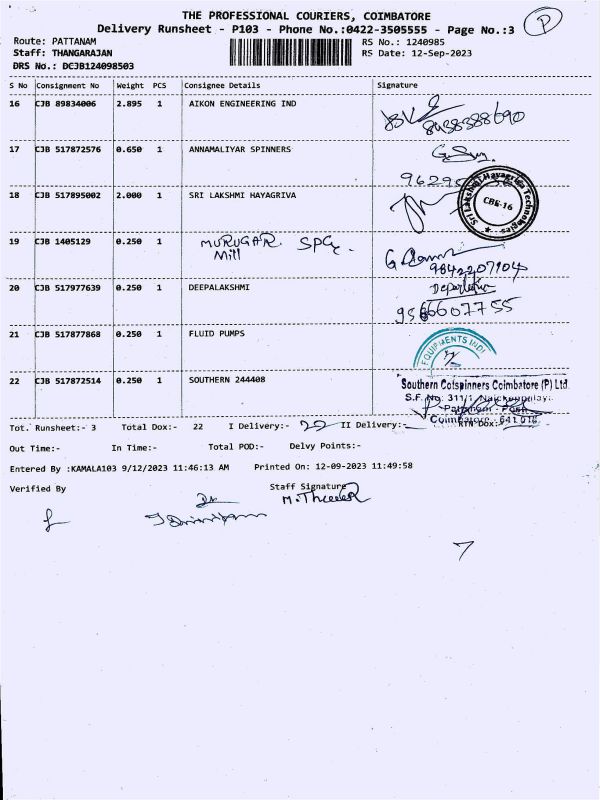 THE PROFESSIONAL COURIERS, COIMBATORE
Delivery Runsheet - P103 - Phone No.:0422-3505555 - Page No.:3
P
Route: PATTANAM
RS No.: 1240985
Staff: THANGARAJAN
RS Date: 12-Sep-2023
DRS No.: DCJB124098503
S No Consignment No Weight PCS Consignee Details Signature
16 CJB 89834006 2.895 1 AIKON ENGINEERING IND
17 CJB 517872576 0.650 1 ANNAMALIYAR SPINNERS
18 CJB 517895002 2.000 1 SRI LAKSHMI HAYAGRIVA
Sri Lakshmi Hayagriva Technologies
CBE-16
19 CJB 1405129 0.250 1 MURUGAR SPG
Mill
9842207104
20 CJB 517977639 0.250 1 DEEPALAKSHMI
21 CJB 517877868 0.250 1 FLUID PUMPS
22 CJB 517872514 0.250 1 SOUTHERN 244408
Southern Cotspinners Coimbatore (P) Ltd
S.F. No: 311/1
Coimbatore - 641 016
Tot. Runsheet:- 3 Total Dox:- 22 I Delivery:- 22 II Delivery:- RTN Dox:-
Out Time:- In Time:- Total POD:- Delvy Points:-
Entered By :KAMALA103 9/12/2023 11:46:13 AM Printed On: 12-09-2023 11:49:58
Verified By Staff Signature
7